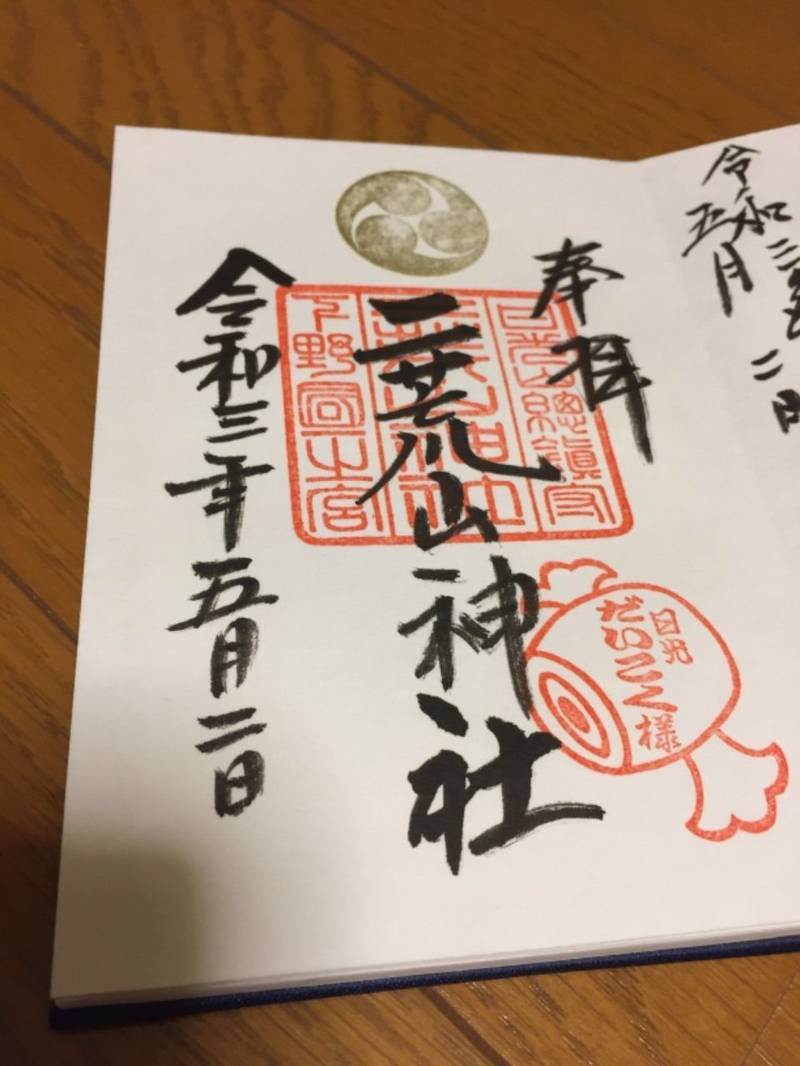 令和三年
五月二日
奉拝
日光總鎮守
二荒山神社
下野國一之宮
日光
だいこく様
令和三年五月二日